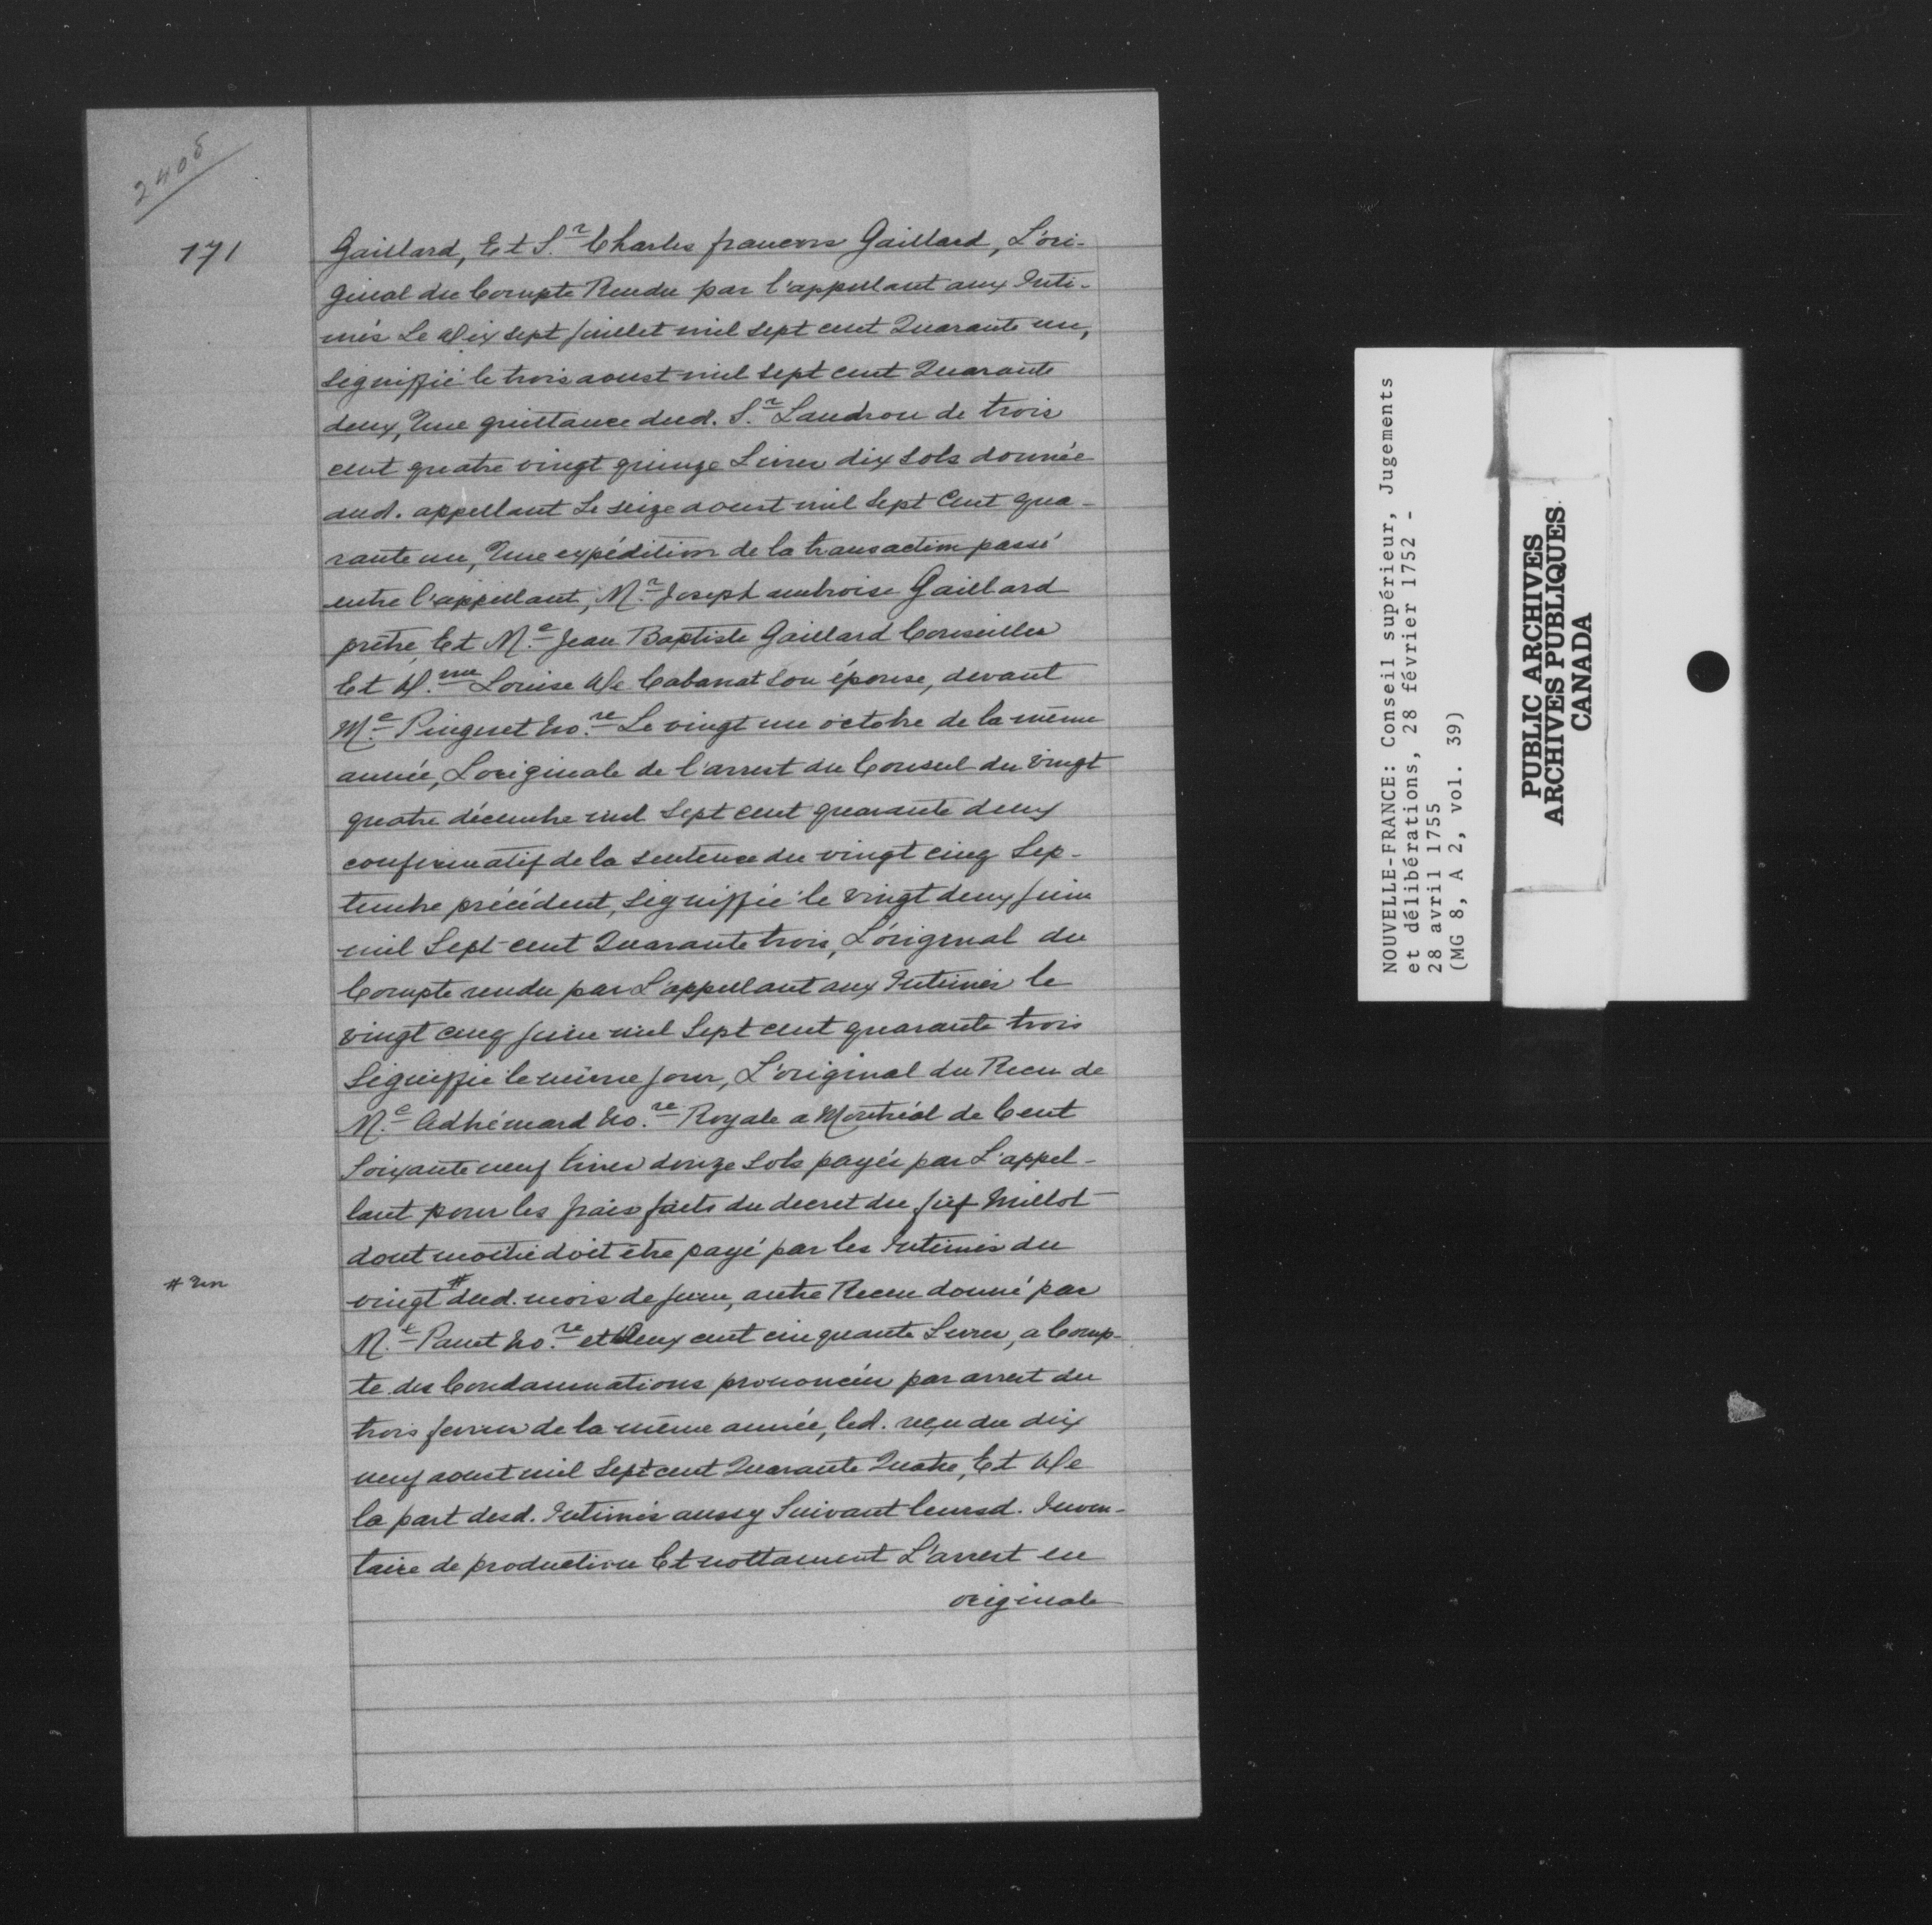 2405
171
Gaillard, Et S.r Charles francois Gaillard, L'ori-
ginal du Compte Rendu par l'appellant aux Inti-
més Le Dix sept juillet mil sept cent Quarante un,
Signiffié le trois aoust mil sept cent Quarante
deux, Une quittance dud. S.r Landron de trois
cent quatre vingt quinze Livres dix sols donnée
aud. appellant Le seize aoust mil Sept Cent qua-
rante un, Une expédition de la transaction passé
entre l'appellant, M.r Joseph ambroise Gaillard
prêtre Et M.e Jean Baptiste Gaillard Conseiller
Et D.me Louise De Cabanat Son épouse, devant
M.e Pinguet No.re Le vingt un octobre de la même
année, L'originale de l'arrest du Conseil du Vingt
quatre décembre mil Sept cent quarante deux
confirmatif de la Sentence du vingt cinq Sep-
tembre précédent, Signiffié le Vingt deux juin
mil Sept cent Quarante trois, L'original du
Compte rendu par L'appellant aux Intimés le
vingt cinq juin mil Sept cent quarante trois
Signiffié le même jour, L'original du Recu de
M.e Adhémard No.re Royale a Montréal de Cent
Soixante neuf livres douze Sols payés par L'appel-
lant pour les frais faits du decret du fief Millot
dont moitié doit être payé par les Intimés du
# Un
vingt # dud. mois de juin, autre Recu donné par
M.e Panet No.re et Deux cent cinquante Livres, a Comp-
te des Condamnations prononcées par arrest du
trois fevrier de la même année, led. reçu du dix
neuf aoust mil Sept cent Quarante Quatre, Et De
la part desd. Intimés aussy Suivant leursd. Inven-
taire de production Et nottament L'arrest en
originale
NOUVELLE-FRANCE: Conseil supérieur, Jugements
et délibérations, 28 février 1752 -
28 avril 1755
(MG 8, A 2, vol. 39)
PUBLIC ARCHIVES
ARCHIVES PUBLIQUES
CANADA